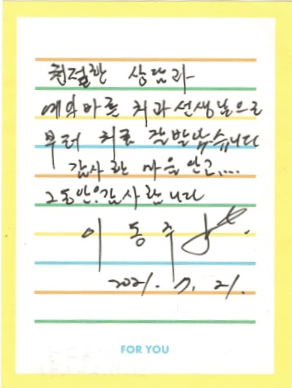 친절한 상담과
예의바른 치과선생님으로
부터 치료 잘받았습니다
감사한 마음 안고....
그동안 감사합니다
이 동 주
2021. 7. 21.
FOR YOU